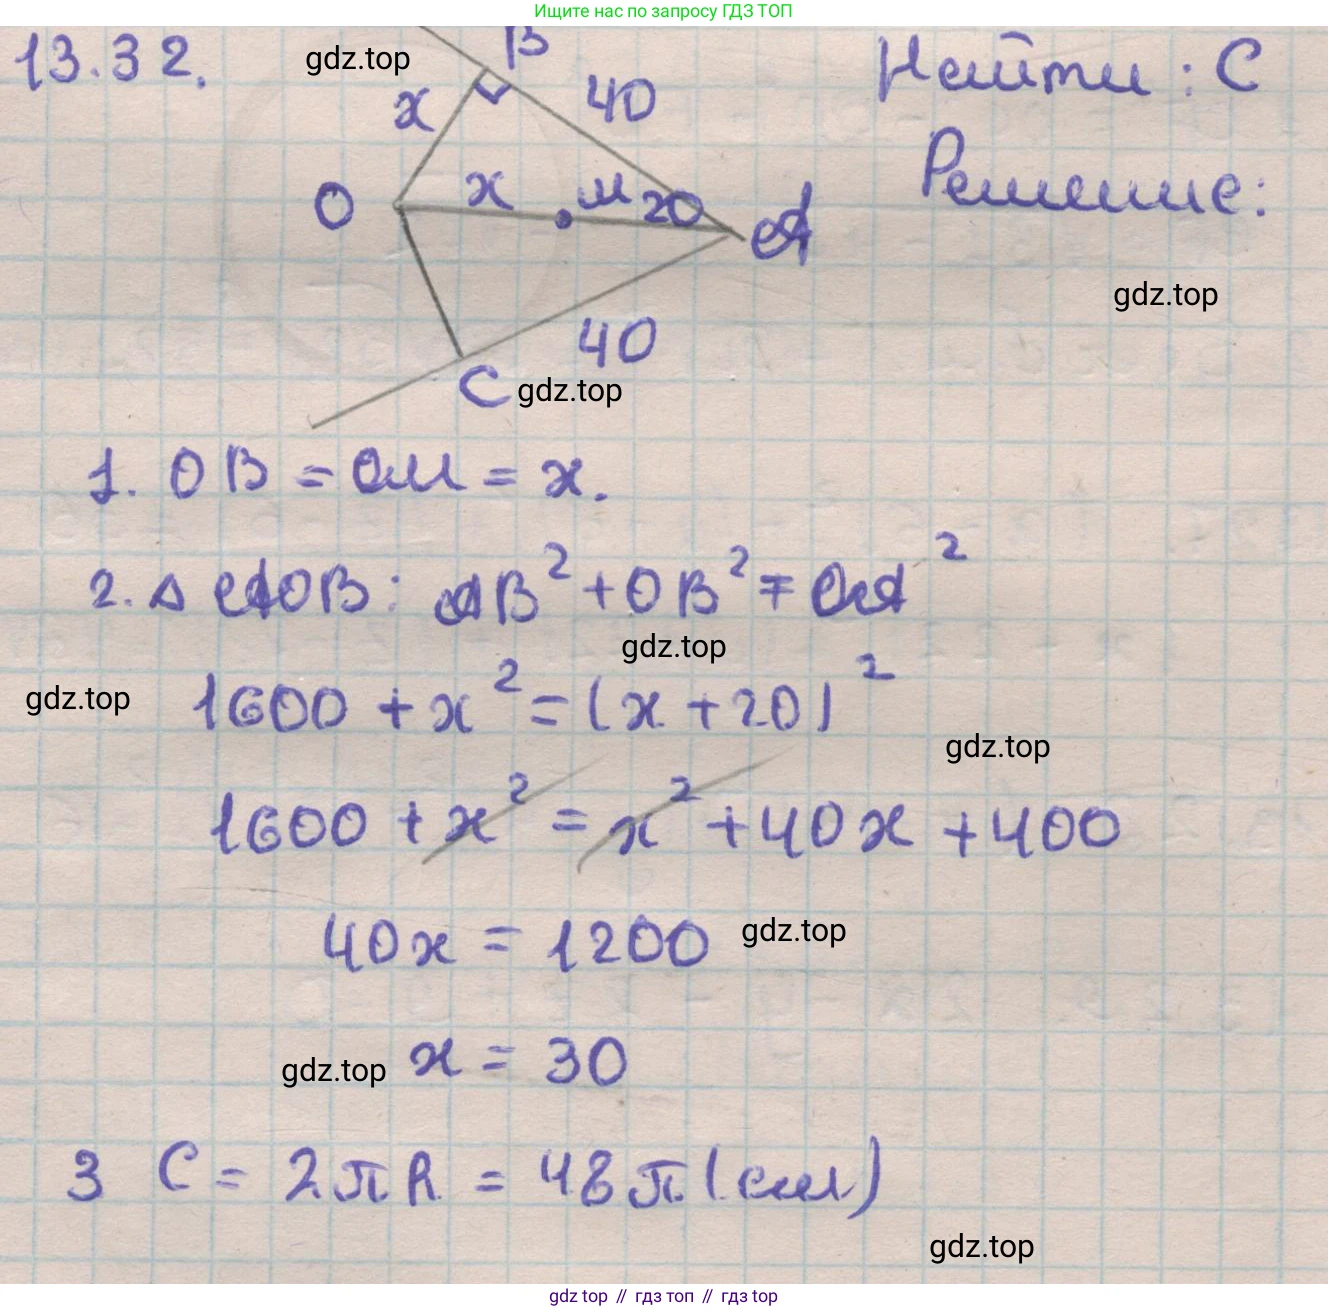 Ищите нас по запросу ГДЗ ТОП
13.32.
gdz.top
B
Найти: C
x
40
Решение:
O
x
M
20
A
gdz.top
40
C
gdz.top
1. OB = OM = x.
2. △ AOB: AB² + OB² = OA²
gdz.top
gdz.top
1600 + x² = (x + 20)²
gdz.top
1600 + x² = x² + 40x + 400
40x = 1200
gdz.top
gdz.top
x = 30
3 C = 2πR = 48π (см)
gdz.top
gdz top // гдз топ // gdz top